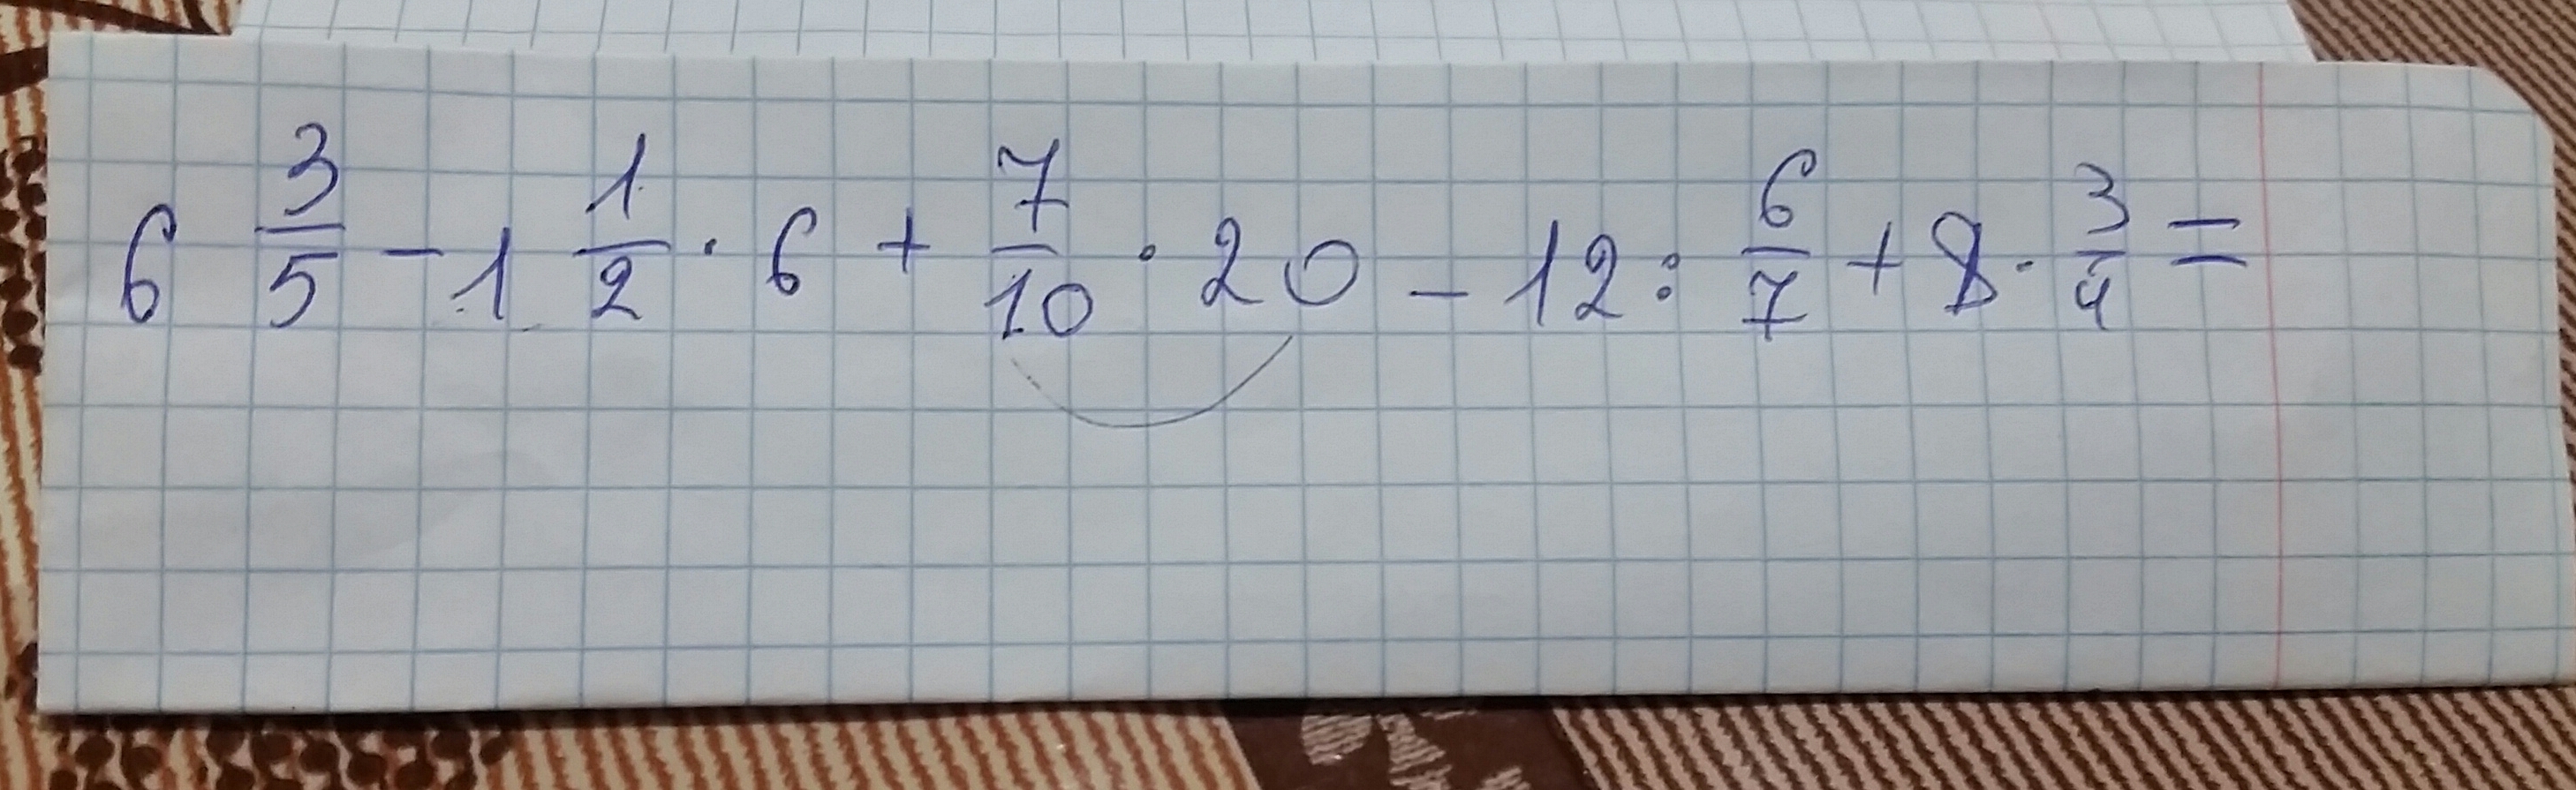 6 3/5 - 1 1/2 · 6 + 7/10 · 20 - 12 : 6/7 + 8 · 3/4 =